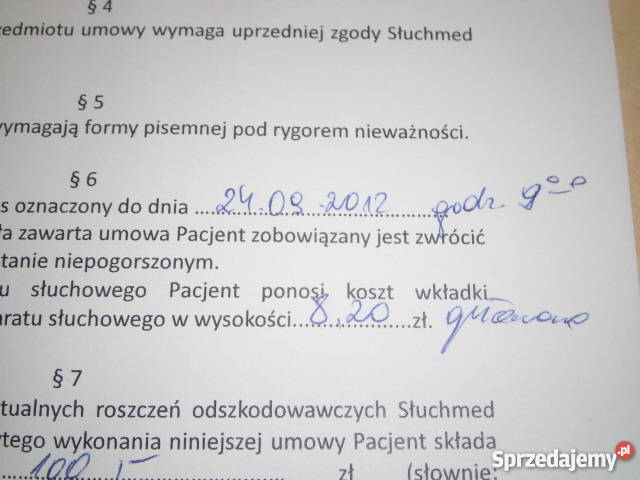 § 4
zedmiotu umowy wymaga uprzedniej zgody Słuchmed
§ 5
wymagają formy pisemnej pod rygorem nieważności.
§ 6
s oznaczony do dnia ....24.09.2012......godz. 9°°
ła zawarta umowa Pacjent zobowiązany jest zwrócić
tanie niepogorszonym.
u słuchowego Pacjent ponosi koszt wkładki
aratu słuchowego w wysokości....8,20....zł.
§ 7
tualnych roszczeń odszkodowawczych Słuchmed
ytego wykonania niniejszej umowy Pacjent składa
......100,-...... zł (słownie:
Sprzedajemy.pl